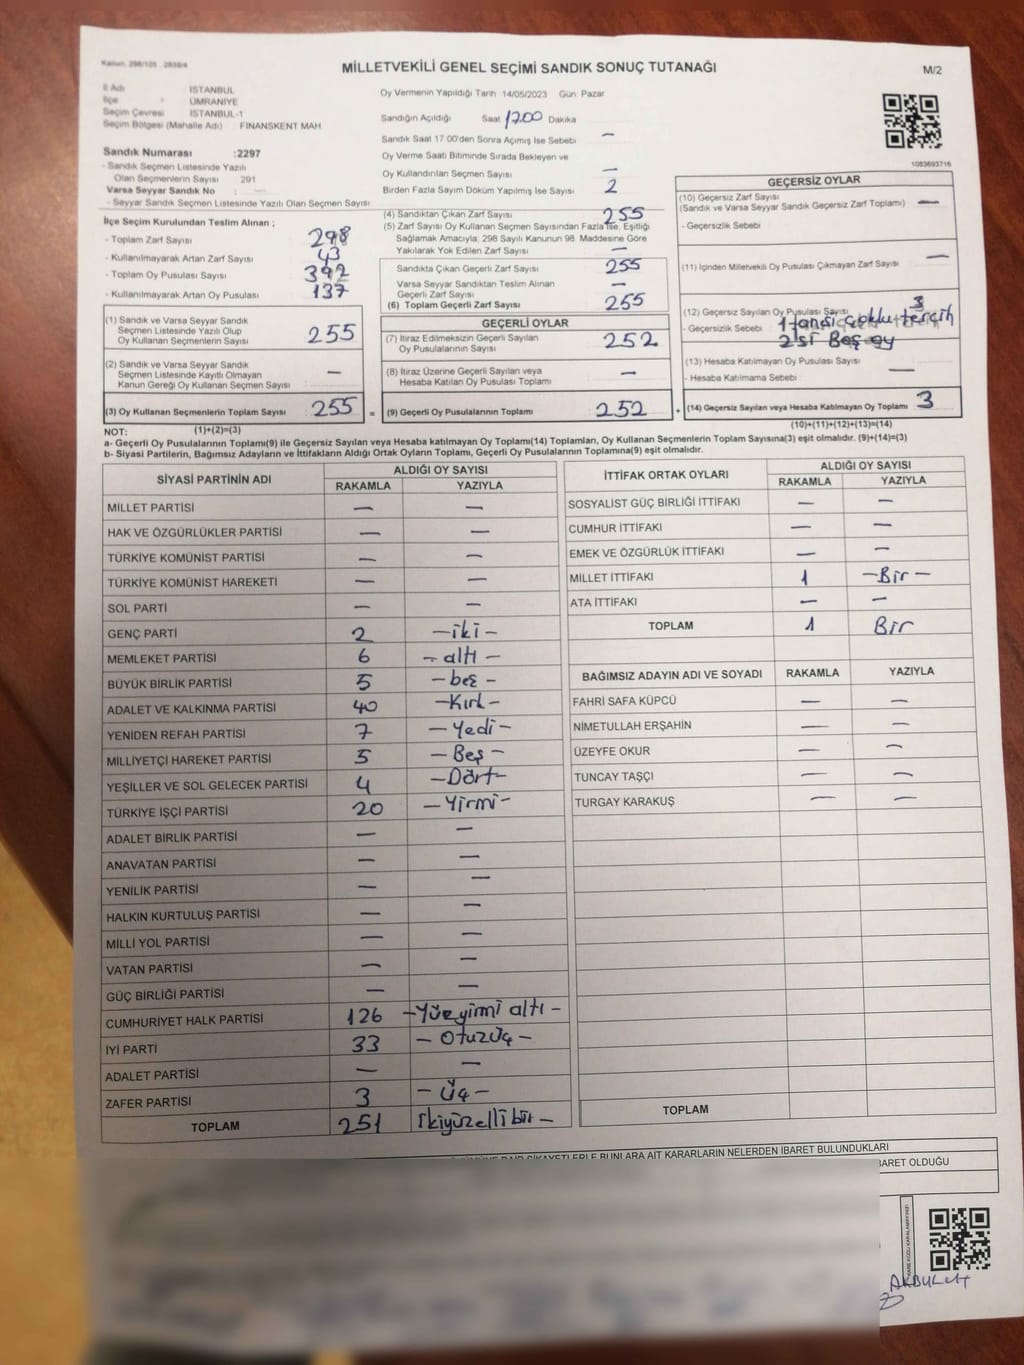 Kanun: 298/105 , 2839/4
MİLLETVEKİLİ GENEL SEÇİMİ SANDIK SONUÇ TUTANAĞI
M/2
İl Adı İSTANBUL
İlçe ÜMRANİYE
Seçim Çevresi İSTANBUL-1
Seçim Bölgesi (Mahalle Adı) FİNANSKENT MAH.
Oy Vermenin Yapıldığı Tarih 14/05/2023 Gün: Pazar
Sandığın Açıldığı Saat 17.00 Dakika
Sandık Saat 17:00'den Sonra Açılmış İse Sebebi —
Oy Verme Saati Bitiminde Sırada Bekleyen ve
Oy Kullandırılan Seçmen Sayısı —
Birden Fazla Sayım Döküm Yapılmış İse Sayısı 2
1083693716
Sandık Numarası :2297
- Sandık Seçmen Listesinde Yazılı
Olan Seçmenlerin Sayısı 291
Varsa Seyyar Sandık No :
- Seyyar Sandık Seçmen Listesinde Yazılı Olan Seçmen Sayısı
İlçe Seçim Kurulundan Teslim Alınan ;
- Toplam Zarf Sayısı 298
- Kullanılmayarak Artan Zarf Sayısı 43
- Toplam Oy Pusulası Sayısı 392
- Kullanılmayarak Artan Oy Pusulası 137
(1) Sandık ve Varsa Seyyar Sandık
Seçmen Listesinde Yazılı Olup
Oy Kullanan Seçmenlerin Sayısı 255
(2) Sandık ve Varsa Seyyar Sandık
Seçmen Listesinde Kayıtlı Olmayan
Kanun Gereği Oy Kullanan Seçmen Sayısı —
(3) Oy Kullanan Seçmenlerin Toplam Sayısı 255 =
(1)+(2)=(3)
(4) Sandıktan Çıkan Zarf Sayısı 255
(5) Zarf Sayısı Oy Kullanan Seçmen Sayısından Fazla İse, Eşitliği
Sağlamak Amacıyla, 298 Sayılı Kanunun 98. Maddesine Göre
Yakılarak Yok Edilen Zarf Sayısı —
Sandıkta Çıkan Geçerli Zarf Sayısı 255
Varsa Seyyar Sandıktan Teslim Alınan
Geçerli Zarf Sayısı —
(6) Toplam Geçerli Zarf Sayısı 255
GEÇERLİ OYLAR
(7) İtiraz Edilmeksizin Geçerli Sayılan
Oy Pusulalarının Sayısı 252
(8) İtiraz Üzerine Geçerli Sayılan veya
Hesaba Katılan Oy Pusulası Toplamı —
(9) Geçerli Oy Pusulalarının Toplamı 252 +
GEÇERSİZ OYLAR
(10) Geçersiz Zarf Sayısı
(Sandık ve Varsa Seyyar Sandık Geçersiz Zarf Toplamı) —
- Geçersizlik Sebebi
(11) İçinden Milletvekili Oy Pusulası Çıkmayan Zarf Sayısı —
(12) Geçersiz Sayılan Oy Pusulası Sayısı 3
- Geçersizlik Sebebi 1 tanesi çoklu tercih
2si Beş oy
(13) Hesaba Katılmayan Oy Pusulası Sayısı —
- Hesaba Katılmama Sebebi
(14) Geçersiz Sayılan veya Hesaba Katılmayan Oy Toplamı 3
(10)+(11)+(12)+(13)=(14)
NOT:
a- Geçerli Oy Pusulalarının Toplamı(9) ile Geçersiz Sayılan veya Hesaba katılmayan Oy Toplamı(14) Toplamları, Oy Kullanan Seçmenlerin Toplam Sayısına(3) eşit olmalıdır. (9)+(14)=(3)
b- Siyasi Partilerin, Bağımsız Adayların ve İttifakların Aldığı Ortak Oyların Toplamı, Geçerli Oy Pusulalarının Toplamına(9) eşit olmalıdır.
SİYASİ PARTİNİN ADI ALDIĞI OY SAYISI
RAKAMLA YAZIYLA
MİLLET PARTİSİ — —
HAK VE ÖZGÜRLÜKLER PARTİSİ — —
TÜRKİYE KOMÜNİST PARTİSİ — —
TÜRKİYE KOMÜNİST HAREKETİ — —
SOL PARTİ — —
GENÇ PARTİ 2 —iki—
MEMLEKET PARTİSİ 6 —altı—
BÜYÜK BİRLİK PARTİSİ 5 —beş—
ADALET VE KALKINMA PARTİSİ 40 —Kırk—
YENİDEN REFAH PARTİSİ 7 —Yedi—
MİLLİYETÇİ HAREKET PARTİSİ 5 —Beş—
YEŞİLLER VE SOL GELECEK PARTİSİ 4 —Dört—
TÜRKİYE İŞÇİ PARTİSİ 20 —Yirmi—
ADALET BİRLİK PARTİSİ — —
ANAVATAN PARTİSİ — —
YENİLİK PARTİSİ — —
HALKIN KURTULUŞ PARTİSİ — —
MİLLİ YOL PARTİSİ — —
VATAN PARTİSİ — —
GÜÇ BİRLİĞİ PARTİSİ — —
CUMHURİYET HALK PARTİSİ 126 —Yüzyirmi altı—
İYİ PARTİ 33 —Otuzüç—
ADALET PARTİSİ — —
ZAFER PARTİSİ 3 —Üç—
TOPLAM 251 İkiyüzellibir—
İTTİFAK ORTAK OYLARI ALDIĞI OY SAYISI
RAKAMLA YAZIYLA
SOSYALİST GÜÇ BİRLİĞİ İTTİFAKI — —
CUMHUR İTTİFAKI — —
EMEK VE ÖZGÜRLÜK İTTİFAKI — —
MİLLET İTTİFAKI 1 —Bir—
ATA İTTİFAKI — —
TOPLAM 1 Bir
BAĞIMSIZ ADAYIN ADI VE SOYADI RAKAMLA YAZIYLA
FAHRİ SAFA KÜPCÜ — —
NİMETULLAH ERŞAHİN — —
ÜZEYFE OKUR — —
TUNCAY TAŞÇI — —
TURGAY KARAKUŞ — —
TOPLAM
ŞİKAYETLERLE BUNLARA AİT KARARLARIN NELERDEN İBARET BULUNDUKLARI
BARET OLDUĞU
AKBULUT